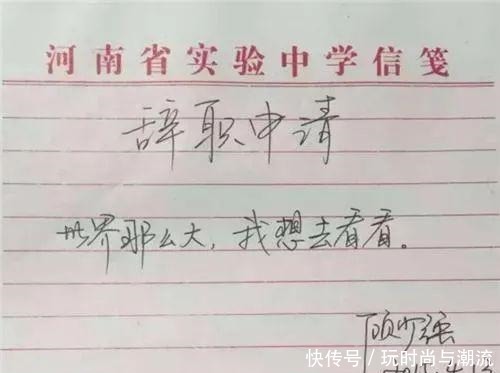 河南省实验中学信笺
辞职申请
世界那么大，我想去看看。
顾少强
快传号／玩时尚与潮流